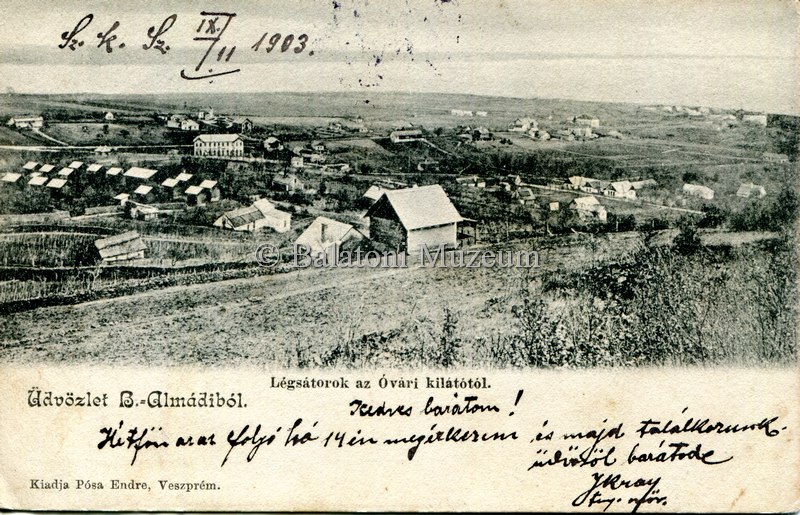 Sz. k. Sz. IX/11 1903.
© Balatoni Múzeum
Légsátorok az Óvári kilátótól.
Üdvözlet B.-Almádiból.
Kedves barátom!
Hétfőn azaz folyó hó 14 én megérkezem és majd találkozunk.
üdvözöl barátod
Kiadja Pósa Endre, Veszprém.